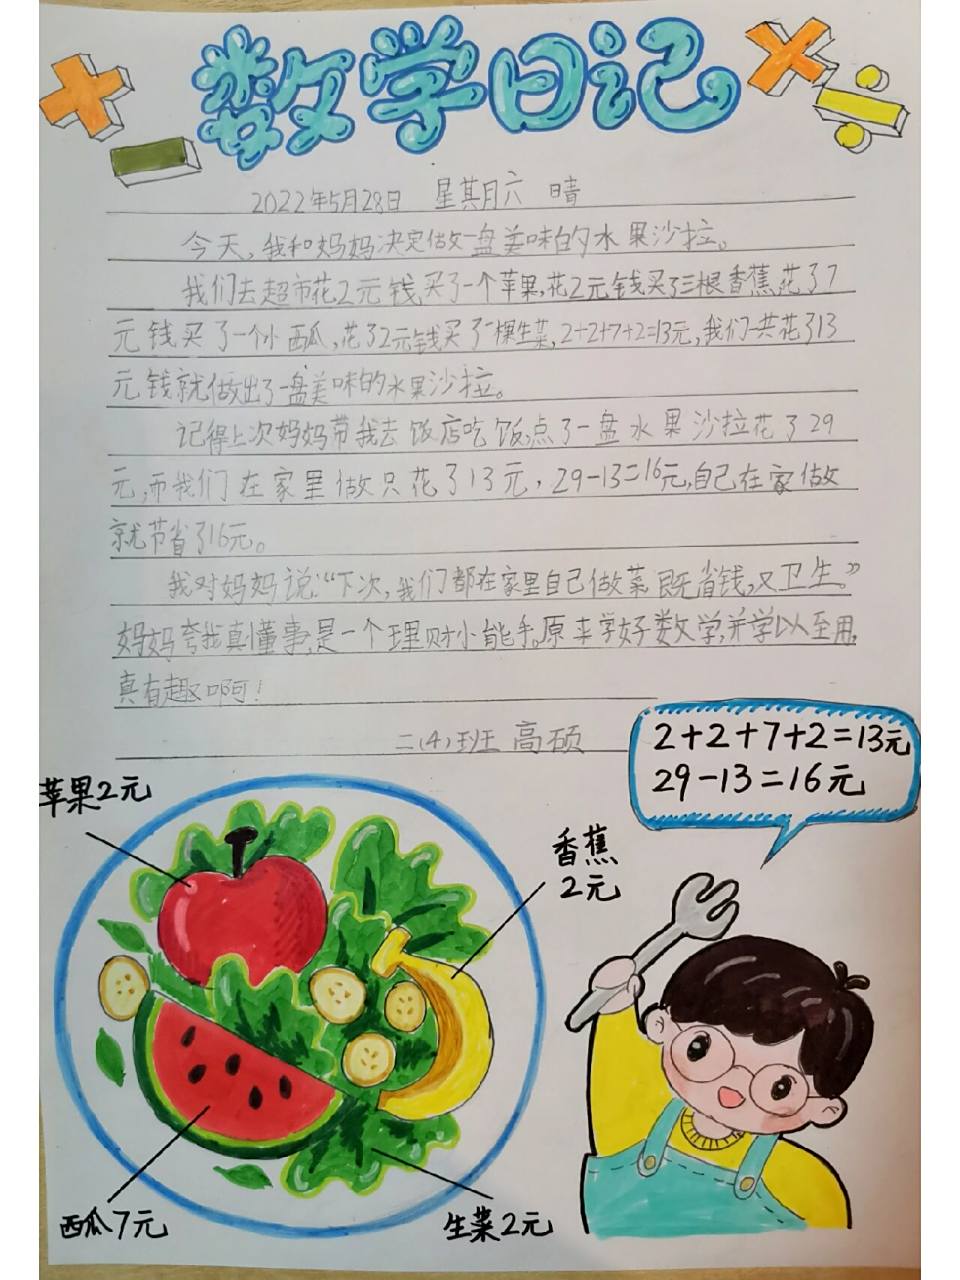 数学日记
2022年5月28日 星期六 晴
今天,我和妈妈决定做一盘美味的水果沙拉。
我们去超市花2元钱,买了一个苹果,花2元钱买了三根香蕉,花了7
元钱买了一个小西瓜,花了2元钱买了一棵生菜,2+2+7+2=13元,我们一共花了13
元钱就做出了一盘美味的水果沙拉。
记得上次妈妈带我去饭店吃饭,点了一盘水果沙拉花了29
元,而我们在家里做只花了13元,29-13=16元,自己在家做
就节省了16元。
我对妈妈说:“下次,我们都在家里自己做菜既省钱,又卫生。”
妈妈夸我真懂事,是一个理财小能手。原来学好数学,并学以至用,
真有趣啊!
二(4)班 高硕
2+2+7+2=13元
29-13=16元
苹果2元
香蕉
2元
西瓜7元
生菜2元